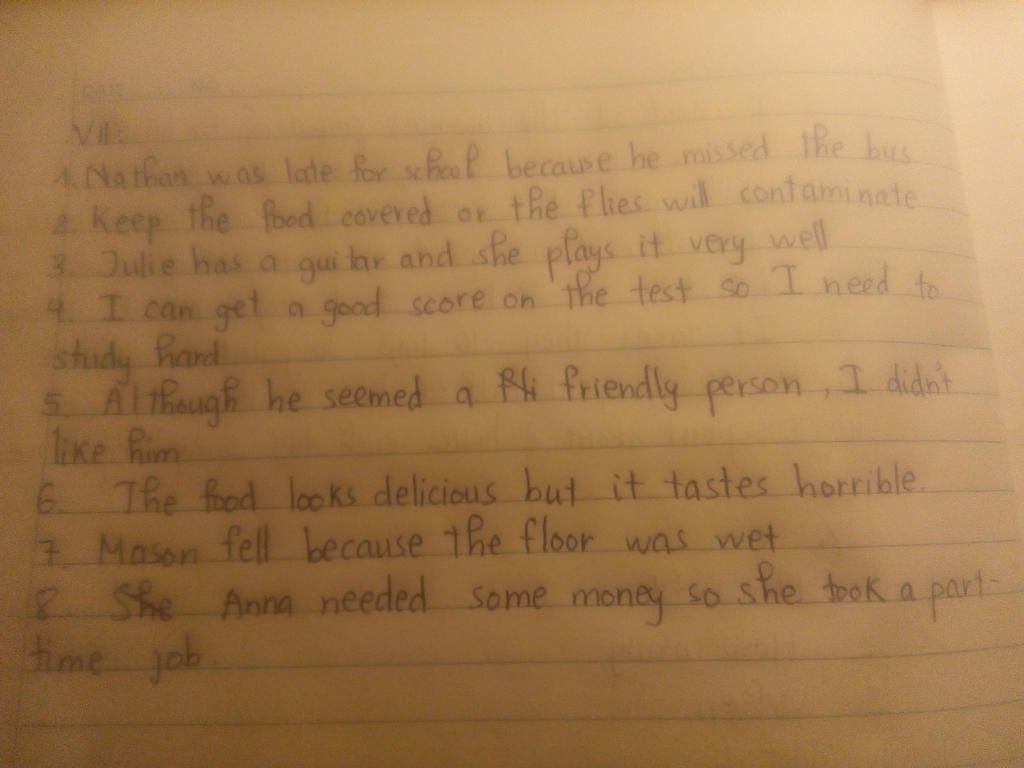 DATE NO
VII:
1. Nathan was late for school because he missed the bus
2. Keep the food covered or the flies will contaminate
3. Julie has a guitar and she plays it very well
4. I can get a good score on the test so I need to
study hard
5. Although he seemed a friendly person, I didn't
like him
6. The food looks delicious but it tastes horrible.
7. Mason fell because the floor was wet
8. She Anna needed some money so she took a part-
time job.